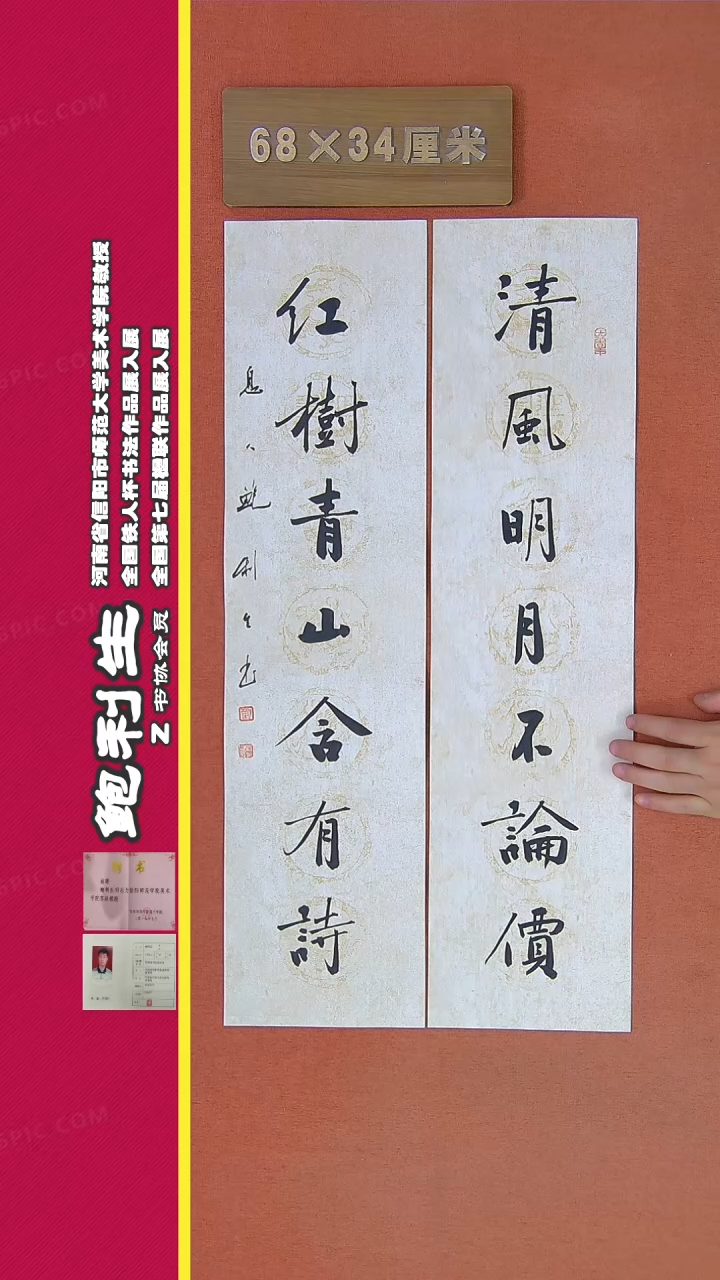 68×34厘米
清風明月不論價
红樹青山含有詩
息人鲍利生书
河南省信阳市师范大学美术学院教授
全国铁人杯书法作品展入展
全国第七届楹联作品展入展
鲍利生
Z 书协会员